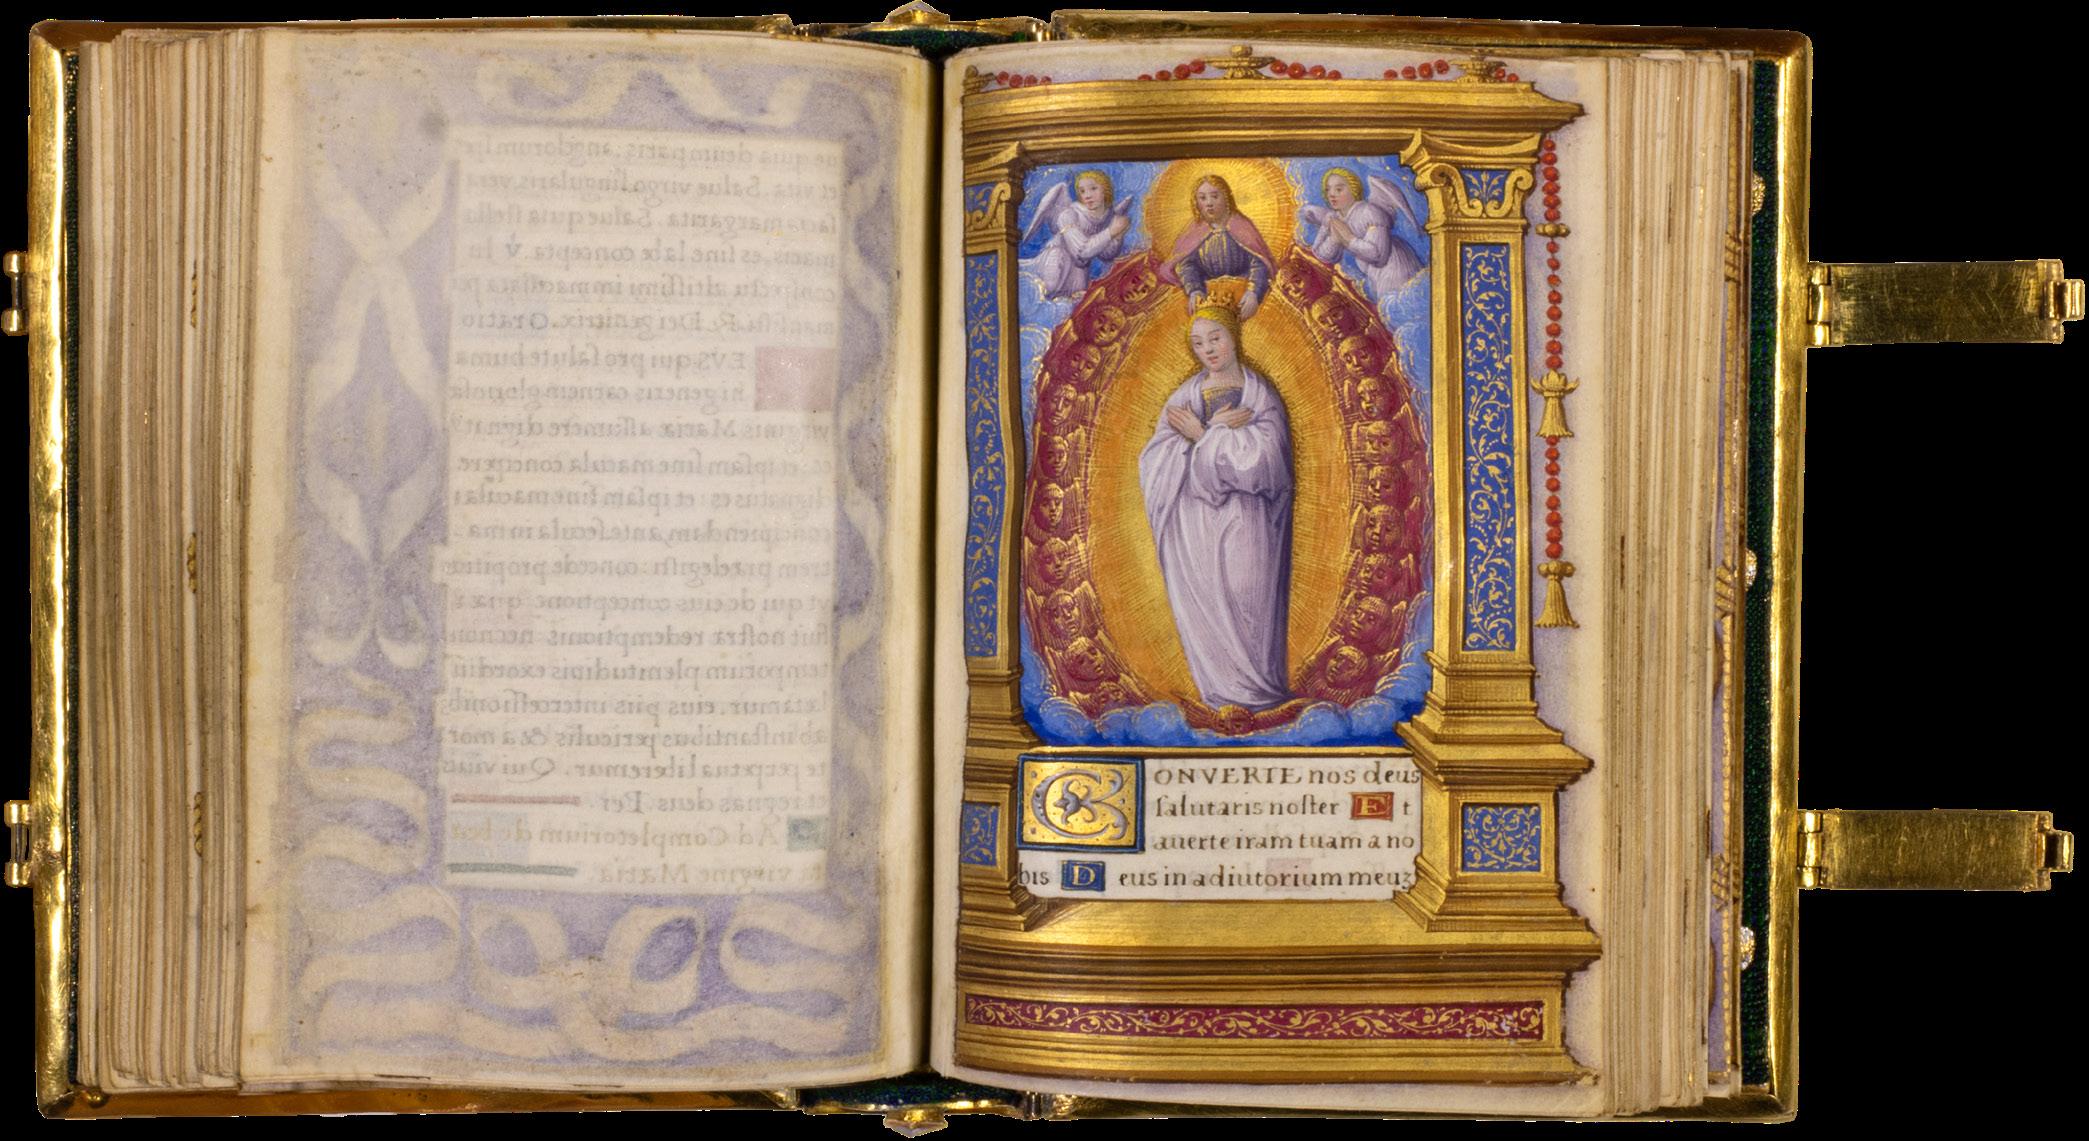 quia deum paris; angelorum
et vita. Salue virgo singularis, vera
margarita. Salue quia stella
maris, es sine labe concepta. ℣ In
conspectu altissimi immaculata
℟. Dei genitrix. Oratio
EVS. qui pro salute huma
ni generis carnem gloriosæ
virginis Mariæ assumere
et ipsam sine macula concipere
dignatus es: et ipsam sine macula
concipiendam, ante sæcula in ma-
trem præelegisti: concede propitius
vt qui de eius conceptione quæ
fuit nostræ redemptionis necnon
temporum plenitudinis exordiũ
lætamur. eius piis intercessionib
ab instantibus periculis & a mor
te perpetua liberemur. Qui viuis
et regnas deus. Per.
Ad Completorium de bea
ta virgine Maria.
CONVERTE nos deus
salutaris noster Et
auerte iram tuam a no
bis Deus in adiutorium meuz